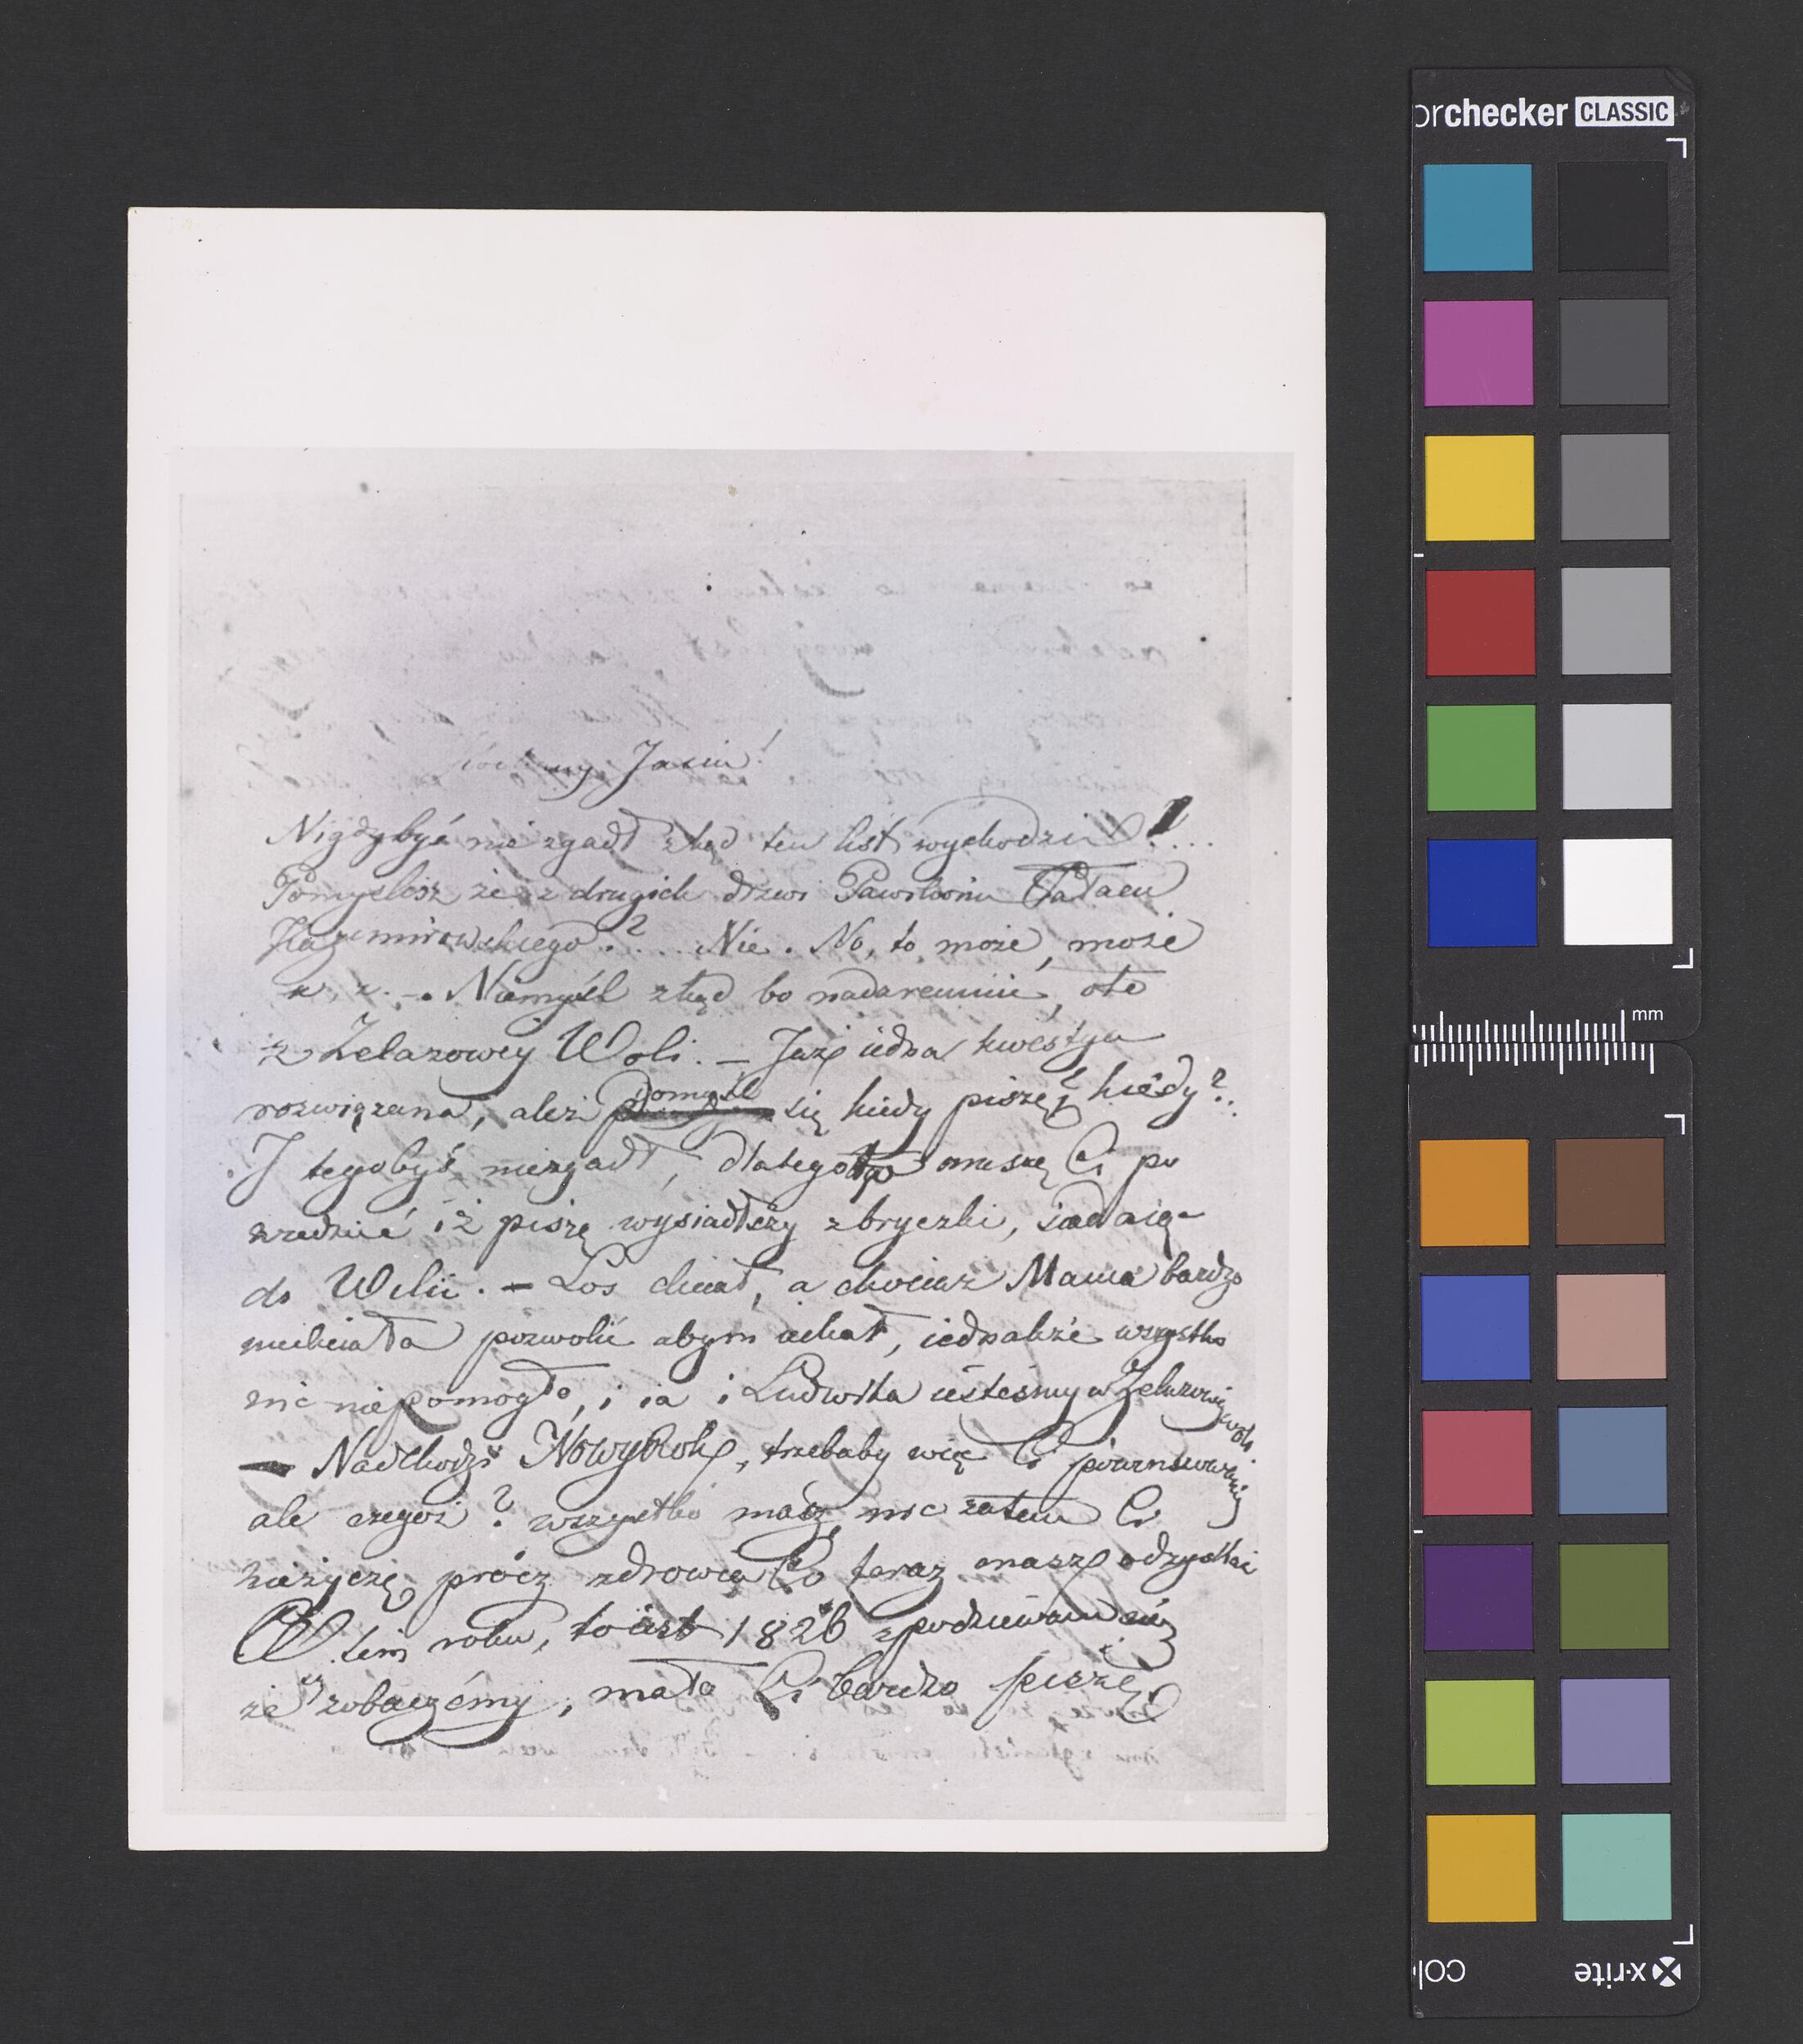 Kochany Jasiu!
Nigdybyś nie zgadł zkąd ten list wychodzi!....
Pomyślisz że z drugich drzwi Pawilonu Pałacu
Kazimirowskiego?.... Nie. No, to może, może
z... – Niemyśl zkąd bo nadaremnie, oto
z Żelazowey Woli. – Już iedna kwestya
rozwiązana, ależ pomyśl się kiedy piszę? kiedy?..
I tegobyś niezgadł, dlatego muszę Ci po
wiedzieć iż piszę wysiadłszy z bryczki, siadaiąc
do Wilii. – Los chciał, a chociaż Mama bardzo
niechciała pozwolić abym iechał, iednakże wszystko
nic niepomogło, i ia i Ludwika iesteśmy w Żelazowey Woli
– Nadchodzi Nowy Rok, trzebaby więc Ci powinszować,
ale czegoż? wszystko masz, nic zatem Ci
nieżyczę, prócz zdrowia Co teraz masz odzyskać
W tim roku, to iest 1826 spodziewam się
że się zobaczémy, mało Ci bardzo piszę,
orchecker CLASSIC
mm
x-rite
col